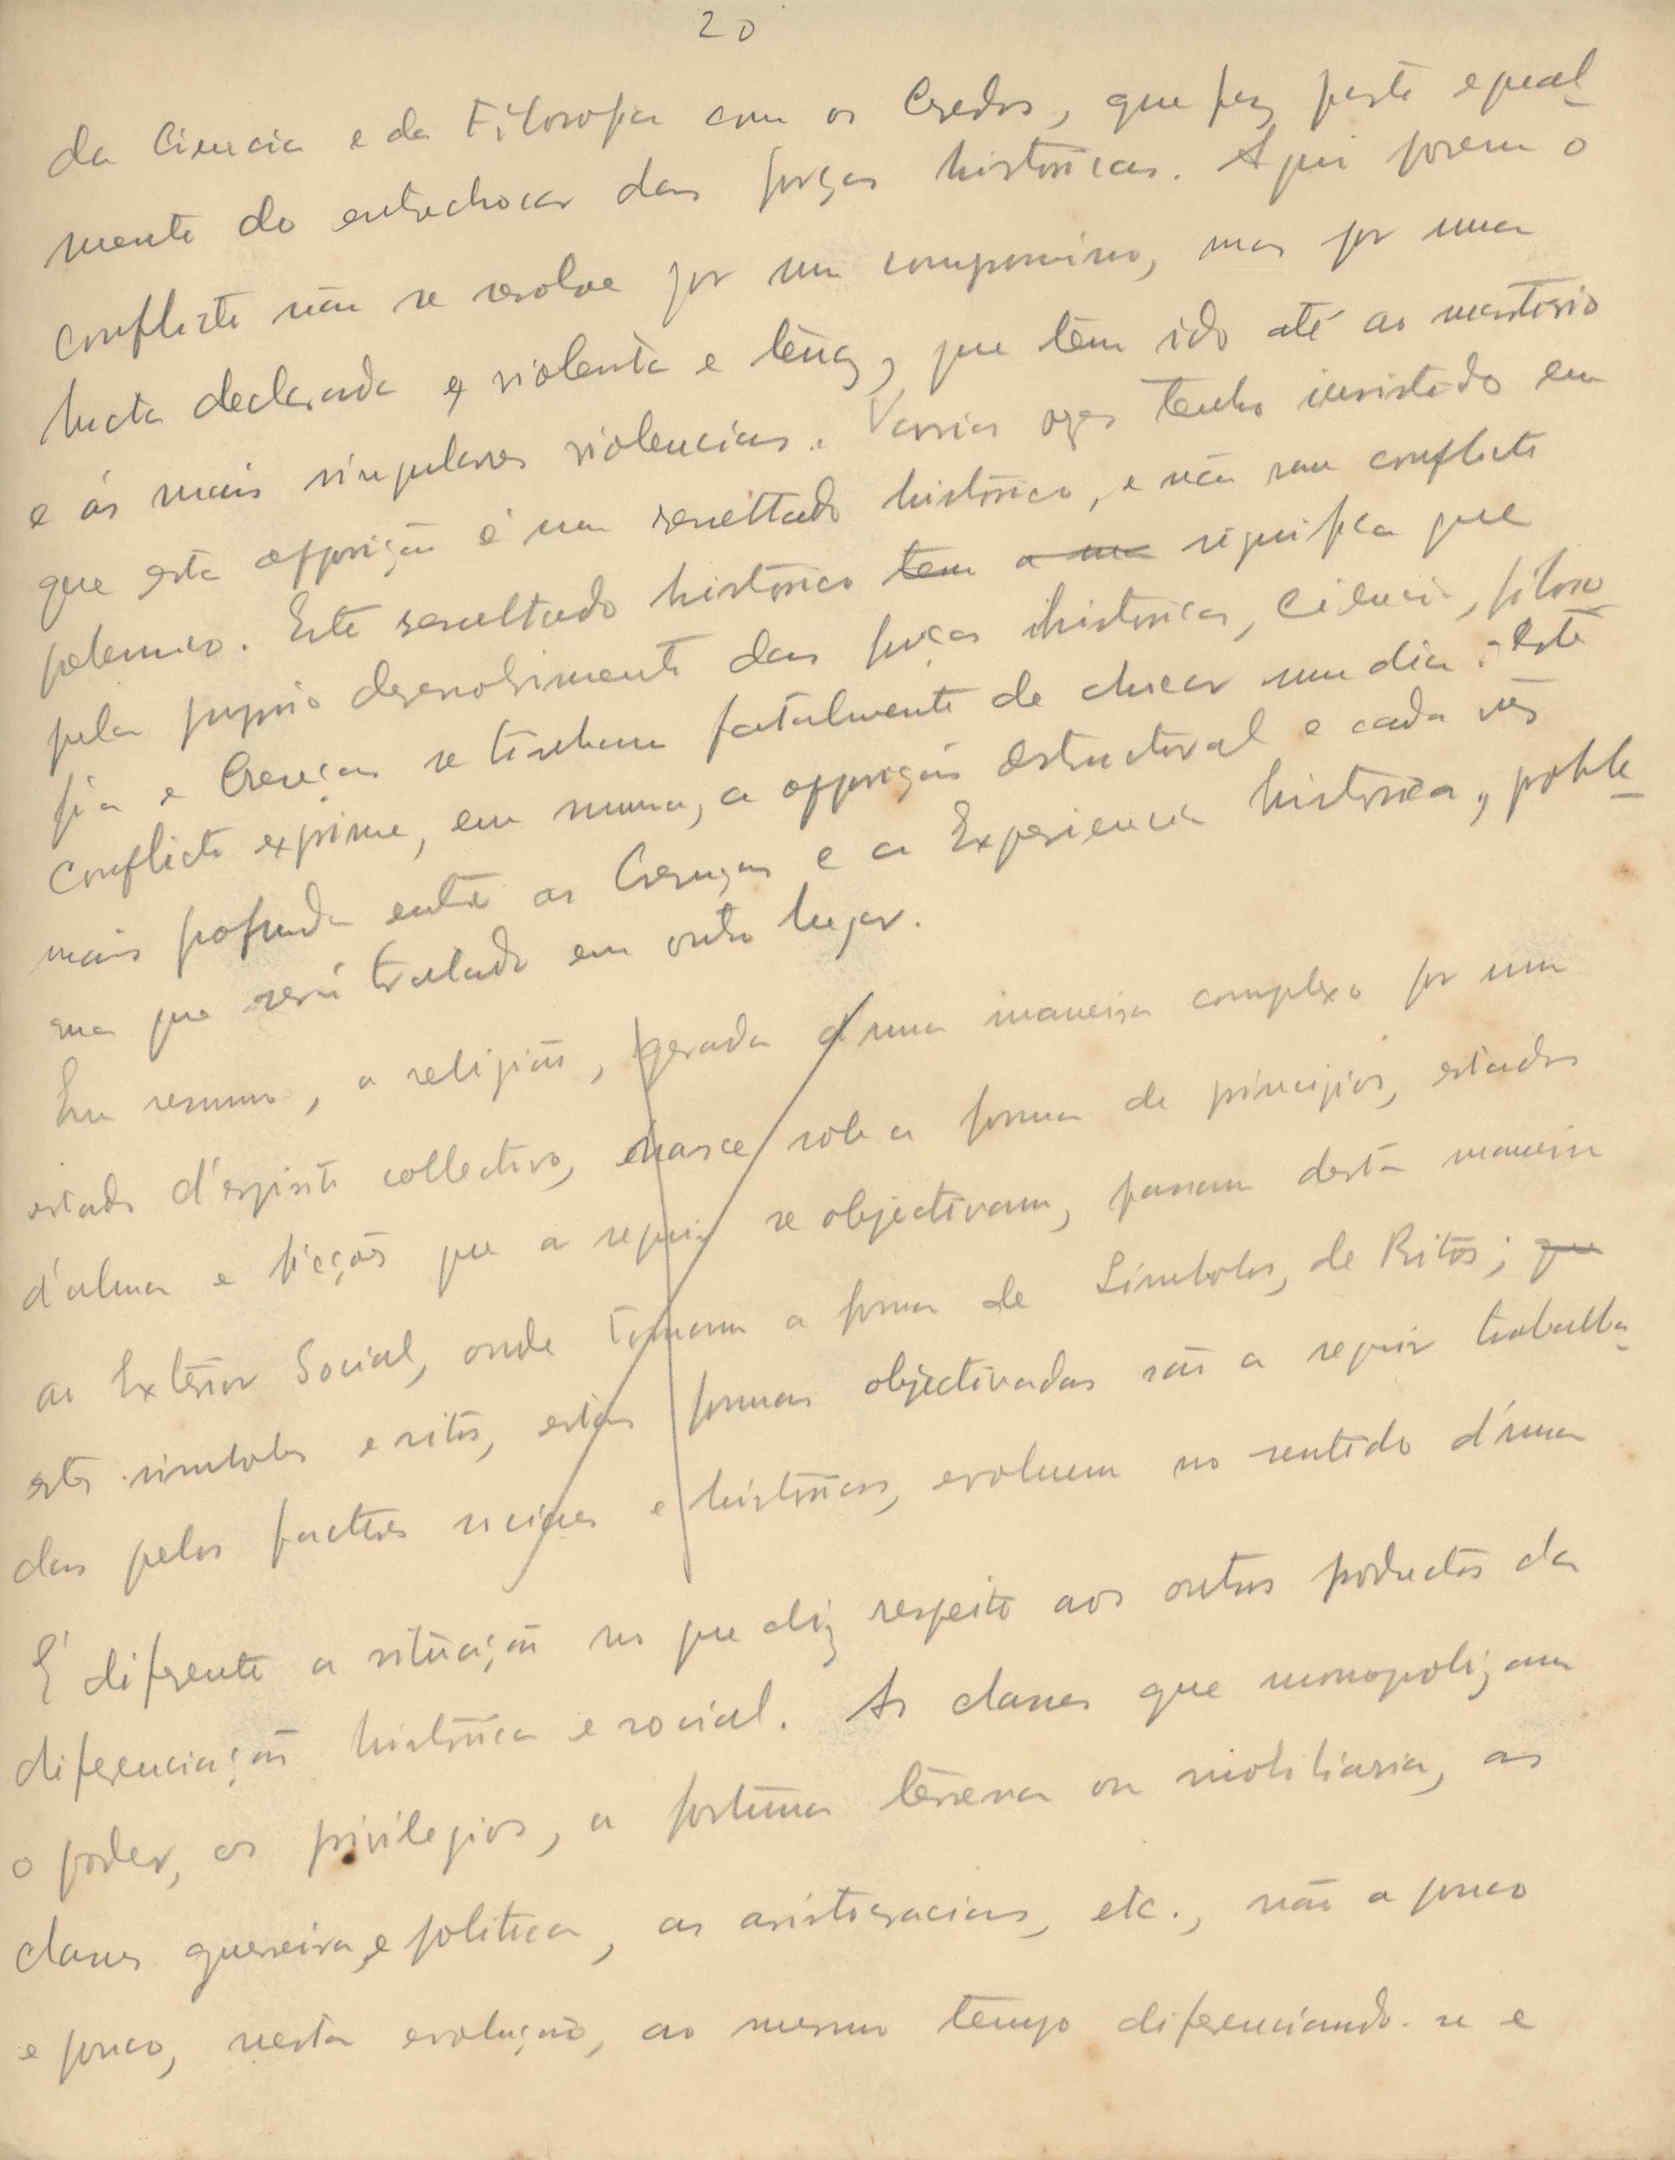 20
da Ciencia e da Filosofia com os Credos, que fez parte egual-
mente do entrechocar das forças históricas. Aqui porem o
conflicto não se resolve por um compromisso, mas por uma
lucta declarada e violenta e tenaz, que tem ido até ao martirio
e ás mais singulares violencias. Varias vezes tenho insistido em
que esta opposição é um resultado histórico, e não um conflicto
polemico. Este resultado histórico tem significa que
pelo proprio desenvolvimento das forças historicas, Ciencia, filoso
fia e Crenças se tinham fatalmente de chocar um dia: este
conflicto exprime, em summa, a opposição estructural e cada vês
mais profunda entre as Crenças e a Experiencia historica, proble-
ma que será tratado em outro lugar.
Em resumo, a religião, gerada d'uma maneira complexa por um
estado d'espirito collectivo, nasce sob a forma de principios, estados
d'alma e ficções que a seguir se objectivam, passam desta maneira
ao Exterior Social, onde tomam a forma de Simbolos, de Ritos; que
estes simbolos e ritos, estas formas objectivadas são a seguir trabalha-
das pelos factores sociaes e históricos, evoluem no sentido d'uma
É diferente a situação no que diz respeito aos outros productos da
diferenciação histórica e social. As classes que monopolizam
o poder, os privilegios, a fortuna terrena ou mobiliaria, as
classes guerreira e politica, as aristocracias, etc., vão a pouco
e pouco, nesta evolução, ao mesmo tempo diferenciando-se e